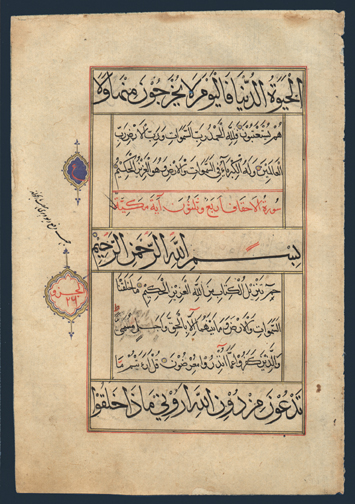 الحيوة الدنيا فاليوم لا يخرجون منها ولا
هم يستعتبون فلله الحمد رب السموات ورب الارض رب
العالمين وله الكبرياء في السموات والارض وهو العزيز الحكيم
سورة الاحقاف اربع وثلثون آية مكية
بسم الله الرحمن الرحيم
حم تنزيل الكتاب من الله العزيز الحكيم ما خلقنا
السموات والارض وما بينهما الا بالحق واجل مسمى
والذين كفروا عما انذروا معرضون قل ارءيتم ما
تدعون من دون الله اروني ماذا خلقوا
الجزو
٢٦